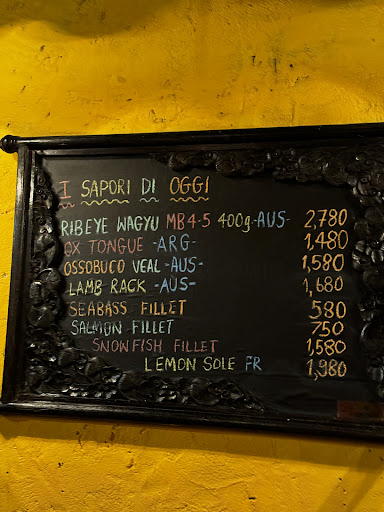 I SAPORI DI OGGI
RIBEYE WAGYU MB4-5 400g-AUS- 2,780
OX TONGUE -ARG- 1,480
OSSOBUCO VEAL -AUS- 1,580
LAMB RACK -AUS- 1,680
SEABASS FILLET 580
SALMON FILLET 750
SNOWFISH FILLET 1,580
LEMON SOLE FR 1,980